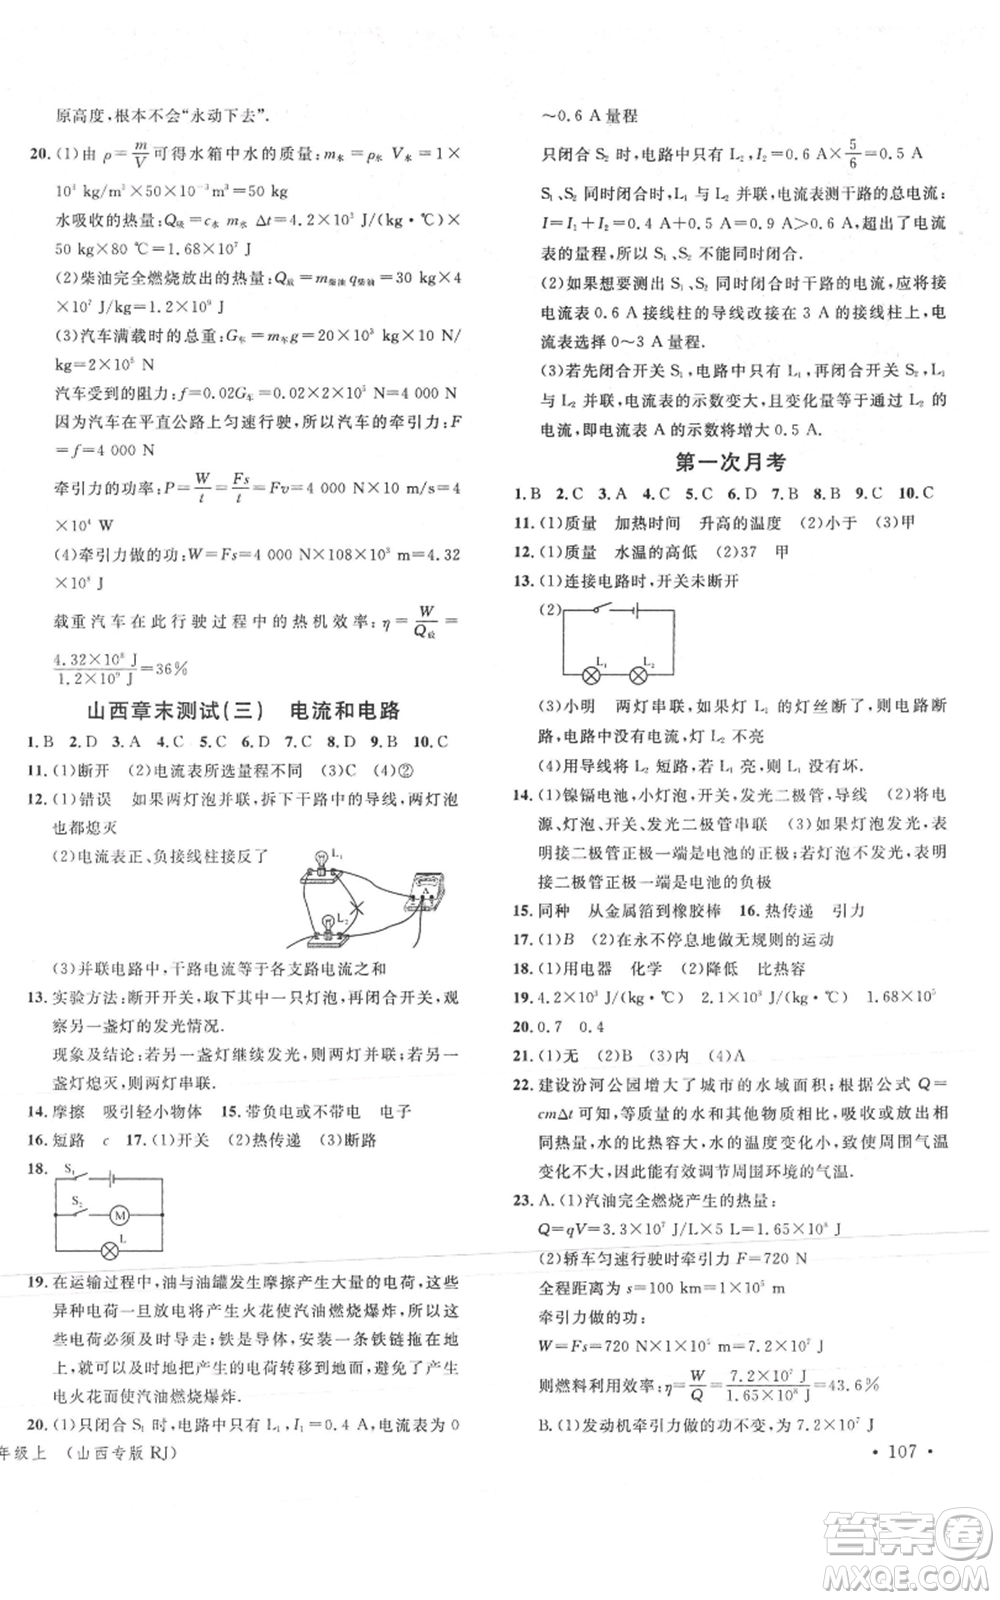 原高度，根本不会“永动下去”.
20. (1)由 ρ=m/V 可得水箱中水的质量：m水=ρ水 V水=1×
10³ kg/m³×50×10⁻³ m³=50 kg
水吸收的热量：Q吸=c水 m水 Δt=4.2×10³ J/(kg·℃)×
50 kg×80 ℃=1.68×10⁷ J
(2)柴油完全燃烧放出的热量：Q放=m柴油 q柴油=30 kg×4
×10⁷ J/kg=1.2×10⁹ J
(3)汽车满载时的总重：G车=m车g=20×10³ kg×10 N/
kg=2×10⁵ N
汽车受到的阻力：f=0.02G车=0.02×2×10⁵ N=4 000 N
因为汽车在平直公路上匀速行驶，所以汽车的牵引力：F
=f=4 000 N
牵引力的功率：P=W/t=Fs/t=Fv=4 000 N×10 m/s=4
×10⁴ W
(4)牵引力做的功：W=Fs=4 000 N×108×10³ m=4.32
×10⁸ J
载重汽车在此行驶过程中的热机效率：η=W/Q放=
4.32×10⁸ J/1.2×10⁹ J=36%
山西章末测试(三) 电流和电路
1. B 2. D 3. A 4. C 5. C 6. D 7. C 8. D 9. B 10. C
11. (1)断开 (2)电流表所选量程不同 (3)C (4)②
12. (1)错误 如果两灯泡并联，拆下干路中的导线，两灯泡
也都熄灭
(2)电流表正、负接线柱接反了
L₁
A
L₂
(3)并联电路中，干路电流等于各支路电流之和
13. 实验方法：断开开关，取下其中一只灯泡，再闭合开关，观
察另一盏灯的发光情况.
现象及结论：若另一盏灯继续发光，则两灯并联；若另一
盏灯熄灭，则两灯串联.
14. 摩擦 吸引轻小物体 15. 带负电或不带电 电子
16. 短路 c 17. (1)开关 (2)热传递 (3)断路
18.
S₁
S₂
M
L
19. 在运输过程中，油与油罐发生摩擦产生大量的电荷，这些
异种电荷一旦放电将产生火花使汽油燃烧爆炸，所以这
些电荷必须及时导走；铁是导体，安装一条铁链拖在地
上，就可以及时地把产生的电荷转移到地面，避免了产生
电火花而使汽油燃烧爆炸.
20. (1)只闭合 S₁ 时，电路中只有 L₁，I₁=0.4 A，电流表为 0
年级上 （山西专版 RJ）
～0.6 A量程
只闭合 S₂ 时，电路中只有 L₂，I₂=0.6 A×5/6=0.5 A
S₁、S₂ 同时闭合时，L₁ 与 L₂ 并联，电流表测干路的总电流：
I=I₁+I₂=0.4 A+0.5 A=0.9 A>0.6 A，超出了电流
表的量程，所以 S₁、S₂ 不能同时闭合.
(2)如果想要测出 S₁、S₂ 同时闭合时干路的电流，应将接
电流表0.6 A接线柱的导线改接在 3 A 的接线柱上，电
流表选择 0～3 A量程.
(3)若先闭合开关 S₁，电路中只有 L₁，再闭合开关 S₂，L₁
与 L₂ 并联，电流表的示数变大，且变化量等于通过 L₂ 的
电流，即电流表 A 的示数将增大 0.5 A.
第一次月考
1. B 2. C 3. A 4. C 5. C 6. D 7. B 8. B 9. C 10. C
11. (1)质量 加热时间 升高的温度 (2)小于 (3)甲
12. (1)质量 水温的高低 (2)37 甲
13. (1)连接电路时，开关未断开
(2)
L₁ L₂
(3)小明 两灯串联，如果灯 L₁ 的灯丝断了，则电路断
路，电路中没有电流，灯 L₂ 一定不亮
(4)用导线将灯 L₂ 短路，若灯 L₁ 亮，则它没有坏.
14. (1)镍镉电池，小灯泡，开关，发光二极管，导线 (2)将电
源、灯泡、开关、发光二极管串联 (3)如果灯泡发光，表
明接二极管正极一端是电池的正极；若灯泡不发光，表明
接二极管正极一端是电池的负极
15. 同种 从金属箔到橡胶棒 16. 热传递 引力
17. (1)B (2)在永不停息地做无规则的运动
18. (1)用电器 化学 (2)降低 比热容
19. 4.2×10³ J/(kg·℃) 2.1×10³ J/(kg·℃) 1.68×10⁵
20. 0.7 0.4
21. (1)无 (2)B (3)内 (4)A
22. 建设汾河公园增大了城市的水域面积；根据公式 Q=
cmΔt 可知，与砂石等相比，在质量相等时，吸收或放出相
同热量，水的比热容大，水的温度变化小，致使周围气温
变化不大，因此能有效调节周围环境的气温.
23. A. (1)汽油完全燃烧产生的热量：
Q=qV=3.3×10⁷ J/L×5 L=1.65×10⁸ J
(2)轿车匀速行驶时牵引力 F=720 N
全程距离为 s=100 km=1×10⁵ m
牵引力做的功：
W=Fs=720 N×1×10⁵ m=7.2×10⁷ J
则燃料利用效率：η=W/Q=7.2×10⁷ J/1.65×10⁸ J=43.6%
B. (1)发动机牵引力做的功不变，为 7.2×10⁷ J
·107·
答案圈
MXQE.COM